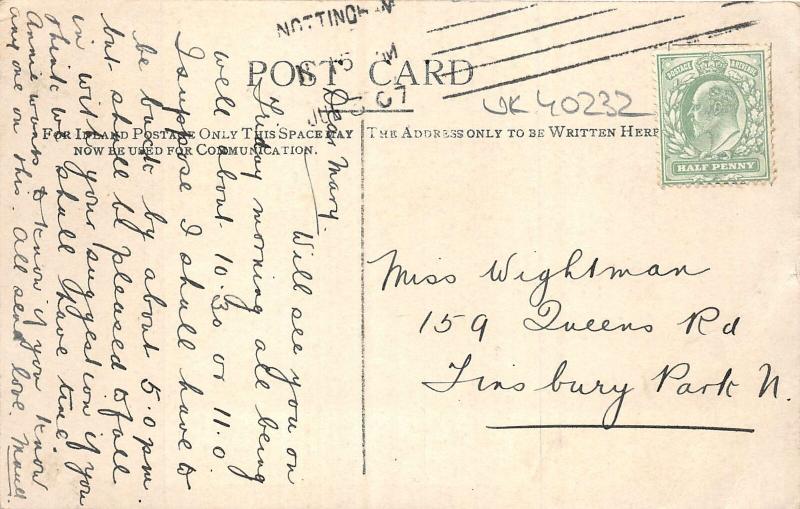 NOTTINGHAM
POST CARD
UK 40232
FOR INLAND POSTAGE ONLY THIS SPACE MAY
NOW BE USED FOR COMMUNICATION.
THE ADDRESS ONLY TO BE WRITTEN HERE
POSTAGE REVENUE
HALF PENNY
Dear Mary.
Will see you on
Friday morning all being
well about 10.30 or 11.0
I suppose I shall have to
be back by about 5.0 pm.
but shall be pleased to fall
in with your suggestion if you
think we shall have time.
Annie wants to know if you know
any one on this. All send love. Maud.
Miss Wightman
159 Queens Rd
Finsbury Park N.